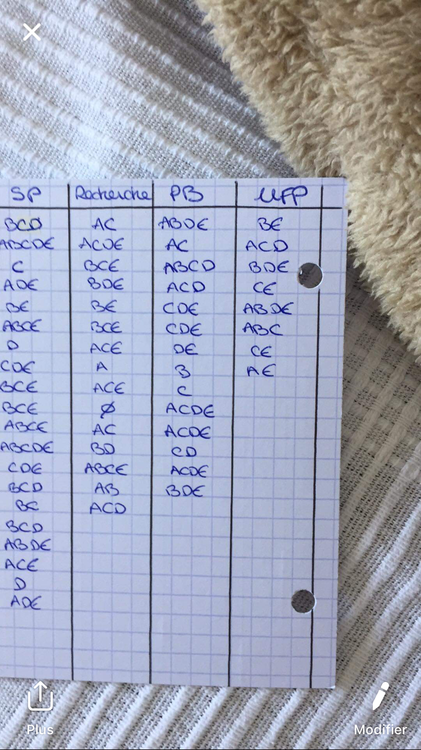 SP Recherche PB UFP
BCD AC ABDE BE
ABCDE ACDE AC ACD
C BCE ABCD BDE
ADE BDE ACD CE
BE BE CDE ABDE
ABCE BCE CDE ABC
D ACE DE CE
CDE A B AE
BCE ACE C
BCE Ø ACDE
ABCE AC ACDE
ABCDE BD CD
CDE ABCE ACDE
BCD AB BDE
ACD
BCD
ABDE
ACE
D
ADE
Plus Modifier